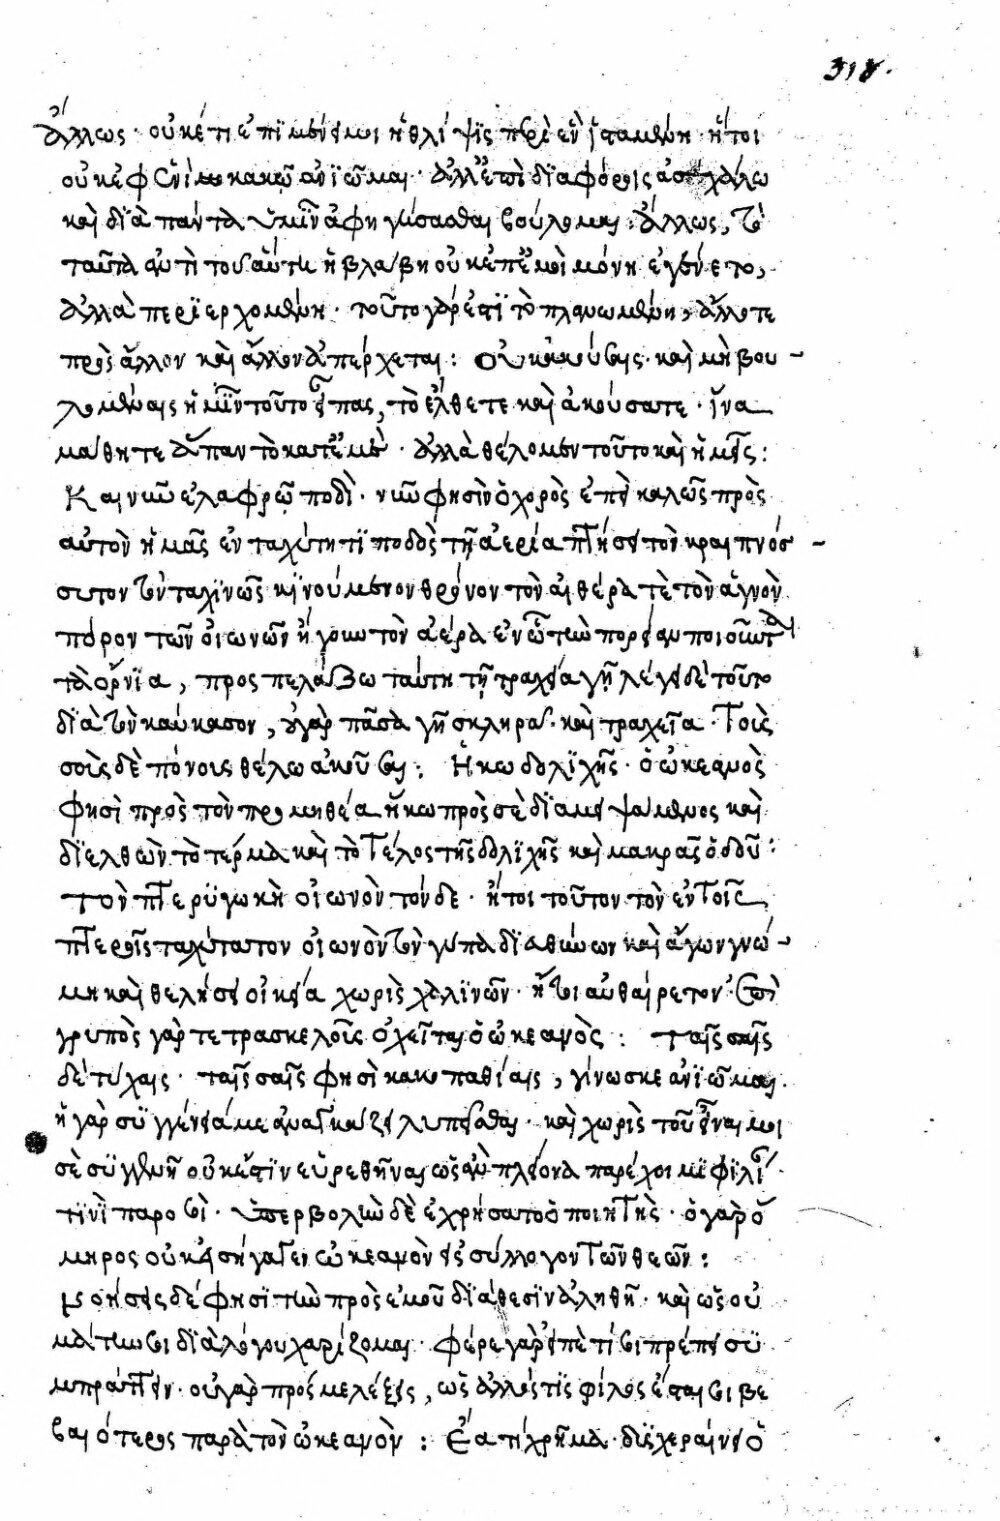 318.
ἄλλως· οὐκέτι ἐπιμένει μοι ἡ θλίψις περὶ ἓν ἱσταμένη· ἤτοι
οὐκ ἐφ' ἑνὶ κακῷ ἀνιῶμαι· ἀλλ' ἐπὶ διαφόροις ἀσχάλω
καὶ διὰ πάντα ὑμῖν ἀφηγήσασθαι βούλομαι: ἄλλως, τὸ
ταῦτα ἀντὶ τοῦ αὕτη ἡ βλάβη οὐκ ἐπ' ἐμοὶ μόνη ἐγένετο,
ἀλλὰ περιερχομένη· τοῦτο γάρ ἐστι τὸ πλανωμένη, ἄλλοτε
πρὸς ἄλλον καὶ ἄλλον ἀπέρχεται: Οὐκ ἀκούσαις· καὶ μὴ βου-
λομέναις ἡμῖν τοῦτο εἶπας, τὸ ἔλθετε καὶ ἀκούσατε· ἵνα
μάθητε ἅπαν τὸ κατ' ἐμέ· ἀλλὰ θέλομεν τοῦτο καὶ ἡμεῖς:
Καὶ νῦν ἐλαφρῷ ποδὶ· νῦν φησὶν ὁ χορὸς ἐπεὶ καλεῖς πρὸς
αὐτὸν ἡμᾶς ἐν ταχύτητι ποδὸς τῇ ἀερία πτήσει τὸν κραιπνόσ-
συτον τὸν ταχινῶς κινούμενον θρόνον τὸν αἰθέρα τὲ τὸν ἁγνὸν
πόρον τῶν οἰωνῶν ἤγουν τὸν ἀέρα ἐν ᾧ τὴν πορείαν ποιοῦνται
τὰ ὄρνια, προσπελάσω ταύτη τῇ τραχεία γῇ λέγει δὲ τοῦτο
διὰ τὸν καύκασον, οὐ γὰρ πᾶσα γῆ σκληρὰ· καὶ τραχεῖα· Τοὺς
σοὺς δὲ πόνους θέλω ἀκοῦσαι: Ἥκω δολιχῆς· ὁ ὠκεανὸς
φησὶ πρὸς τὸν προμηθέα ἥκω πρὸς σὲ διαμειψάμενος καὶ
διελθὼν τὸ τέρμα καὶ τὸ τέλος τῆς δολιχῆς καὶ μακρᾶς ὁδοῦ:
Τὸν πτερυγωκῆ οἰωνὸν τόνδε· ἤτοι τοῦτον τὸν ἐν τοῖς
πτεροῖς ταχύτατον οἰωνὸν τὸν γύπα διευθύνων καὶ ἄγων γνώ-
μη καὶ θελήσει οἰκεία χωρὶς χαλινῶν· ἤτοι αὐθαίρετον· ἐπὶ
γρυπὸς γὰρ τετρασκελοῦς ὀχεῖται ὁ ὠκεανὸς: Ταῖς σαῖς
δὲ τύχαις· ταῖς σαῖς φησὶ κακοπαθίαις, γίνωσκε ἀνιῶμαι·
ἡ γὰρ συγγένειά με ἀναγκάζει λυπεῖσθαι· καὶ χωρὶς τοῦ εἶναί μοι
σὲ συγγενῆ οὐκ ἔστιν εὑρεθῆναι ὡς ἂν πλείονα παρέχοιμι φιλίαν
τινὶ παρὸ σὶ· ὑπερβολὴν δὲ ἐχρήσατο ὁ ποιητὴς· ὁ γὰρ ὅ
μηρος οὐκ εἰσήγαγεν ὠκεανὸν εἰς σύλλογον τῶν θεῶν:
Νοήσεις δέ φησι τὴν πρὸς ἐμοῦ διάθεσιν ἀληθῆ· καὶ ὡς οὐ
μάτην σοι διὰ λόγου χαρίζομαι· φέρε γὰρ εἰπὲ τί σοι πρέπει συ
μπράττειν· οὐ γὰρ προσμελέξεις, ὡς ἄλλός τις φίλος ἔσται σοι βε
βαιότερος παρὰ τὸν ὠκεανὸν: Ἔα τί χρῆμα· δισχεραίνει ὁ